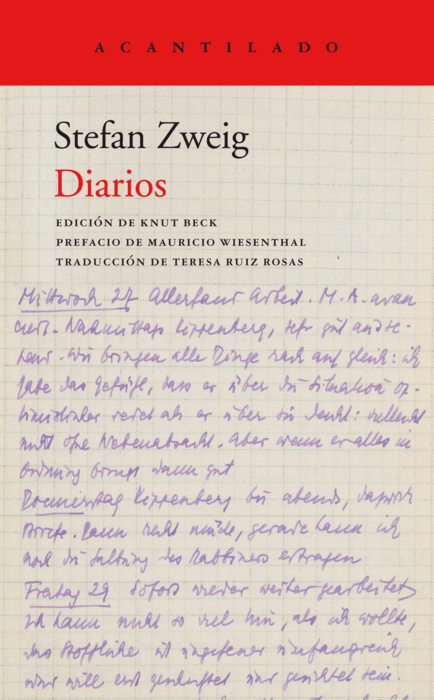 ACANTILADO
Stefan Zweig
Diarios
EDICIÓN DE KNUT BECK
PREFACIO DE MAURICIO WIESENTHAL
TRADUCCIÓN DE TERESA RUIZ ROSAS
Mittwoch 27 Allerhand Arbeit. M. A. avan
ciert. Nachmittags Kippenberg, sehr gut
Wir bringen alle Dinge rasch auf gleich: ich
habe das Gefühl, dass er über die Situation op-
timistischer redet als er über sie denkt: vielleicht
nicht ohne Nebenabsicht. Aber wenn er alles in
Ordnung bringt dann gut
Donnerstag Kippenberg bis abends,
Briefe. Dann recht müde, gerade kann ich
noch die des Rabbiners ertragen
Freitag 29 Sofort wieder weitergearbeitet
Ich kann nicht so viel hin, als ich wollte,
das Stoffliche ist ungeheuer umfangreich
und will erst gesichtet sein.